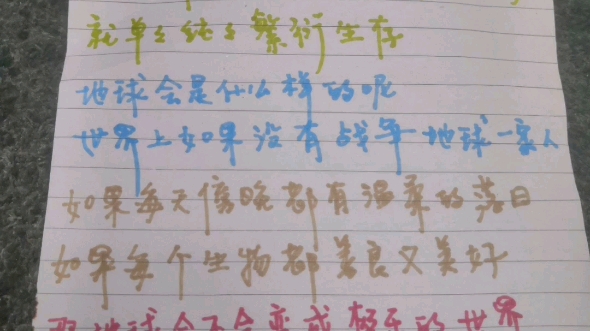 就单单纯纯繁衍生存
地球会是什么样的呢
世界上如果没有战争 地球一家人
如果每天傍晚都有温柔的落日
如果每个生物都善良又美好
那地球会不会变成极乐的世界